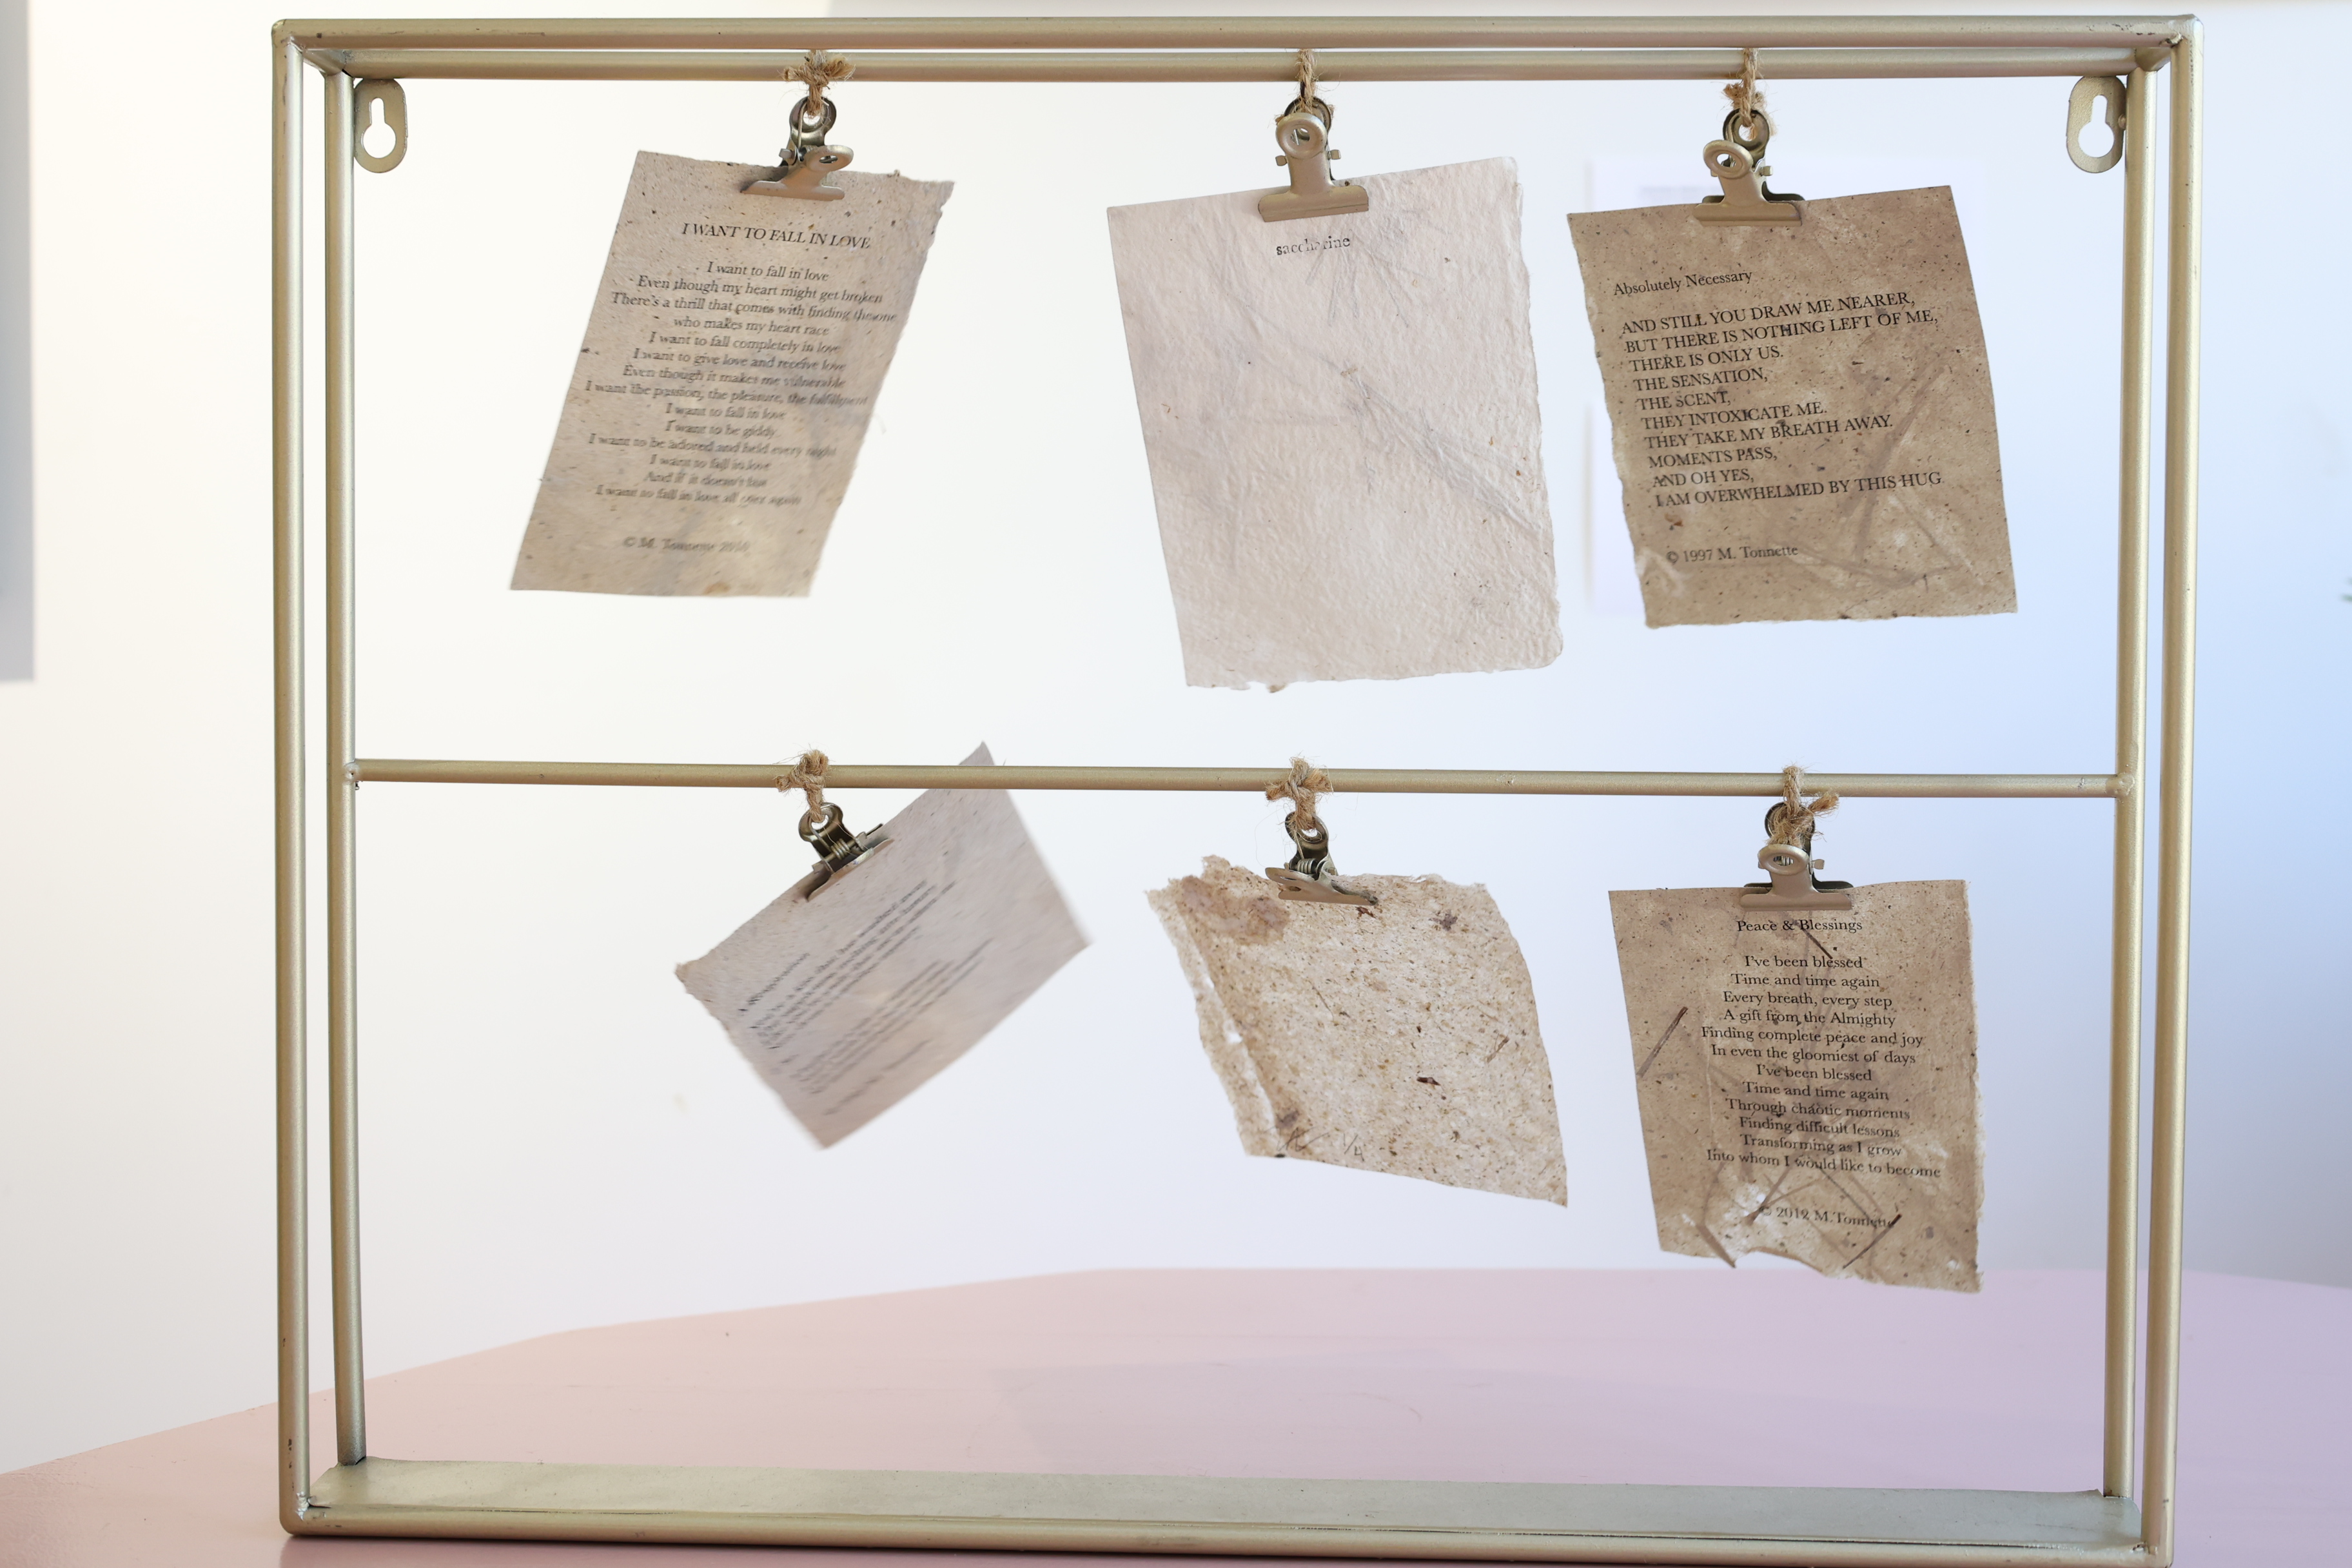 I WANT TO FALL IN LOVE
I want to fall in love
Even though my heart might get broken
There's a thrill that comes with finding the one
who makes my heart race
I want to fall completely in love
I want to give love and receive love
Even though it makes me vulnerable
I want the passion, the pleasure, the fulfillment
I want to fall in love
I want to be giddy
I want to be adored and held every night
I want to fall in love
And if it doesn't last
I want to fall in love all over again
© M. Tonnette
saccharine
Absolutely Necessary
AND STILL YOU DRAW ME NEARER,
BUT THERE IS NOTHING LEFT OF ME,
THERE IS ONLY US.
THE SENSATION,
THE SCENT,
THEY INTOXICATE ME.
THEY TAKE MY BREATH AWAY.
MOMENTS PASS,
AND OH YES,
I AM OVERWHELMED BY THIS HUG.
© 1997 M. Tonnette
1/4
Peace & Blessings
I've been blessed
Time and time again
Every breath, every step
A gift from the Almighty
Finding complete peace and joy
In even the gloomiest of days
I've been blessed
Time and time again
Through chaotic moments
Finding difficult lessons
Transforming as I grow
Into whom I would like to become
© 2012 M. Tonnette